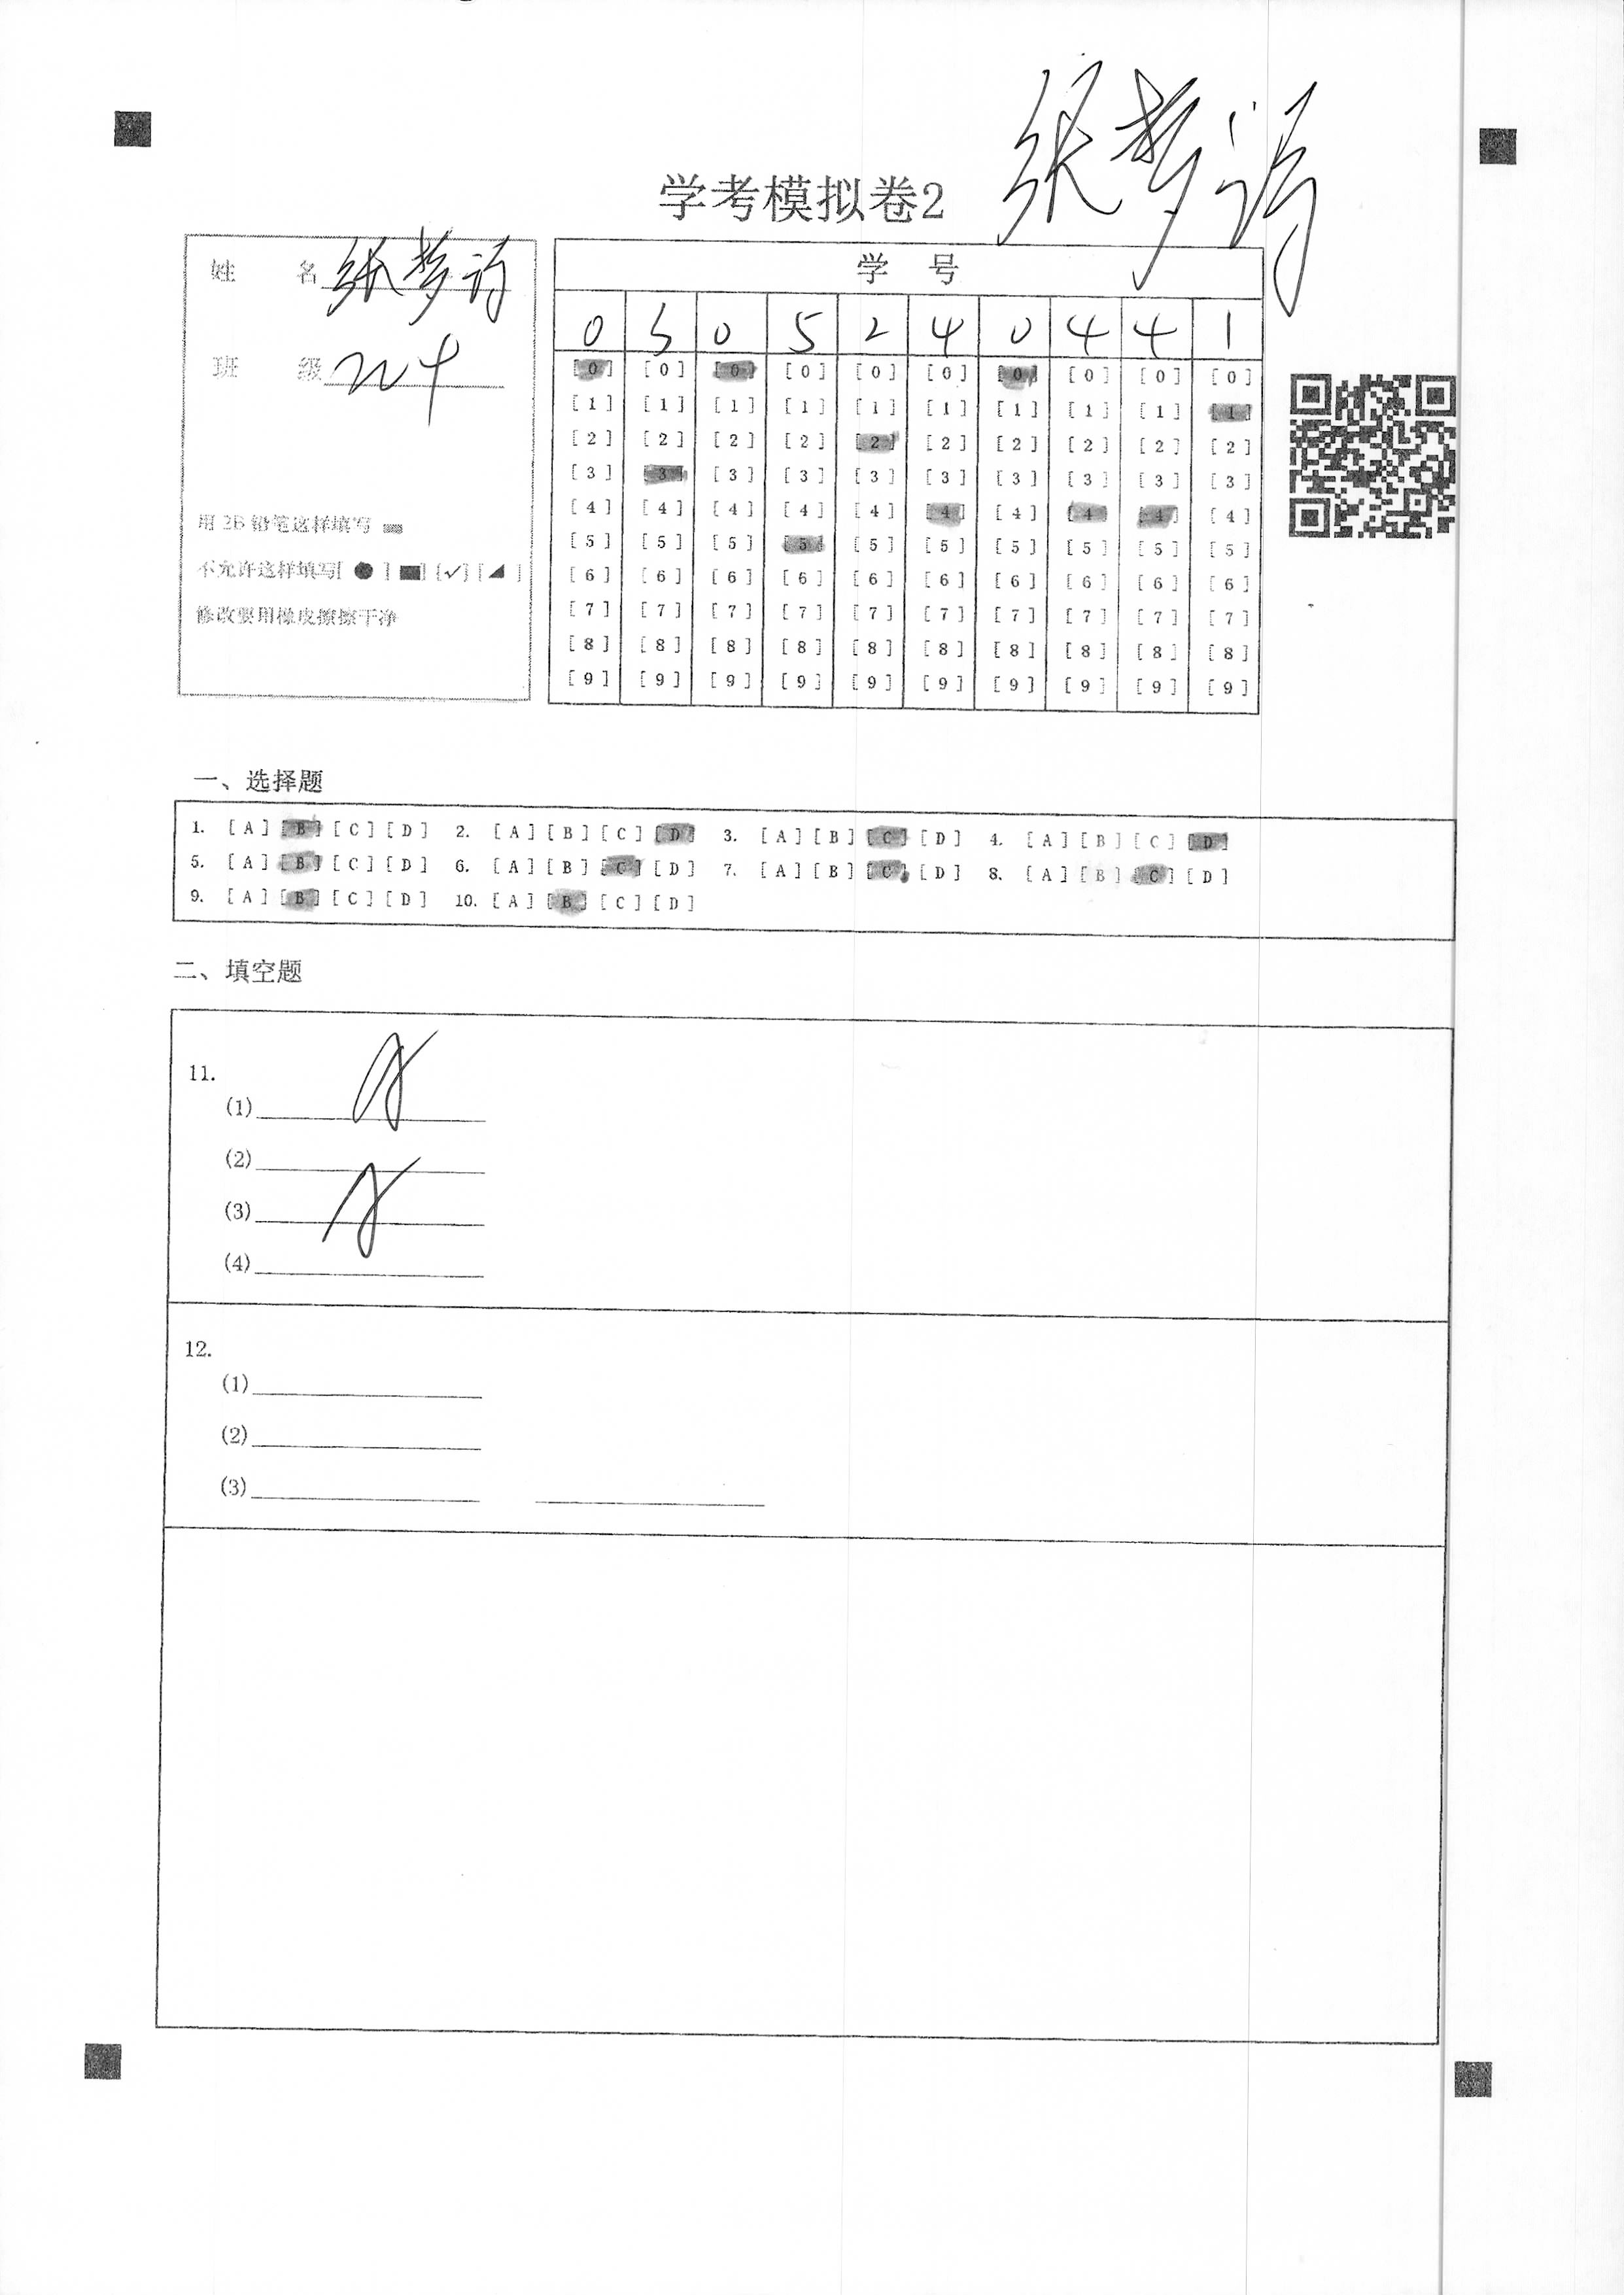 学考模拟卷2
姓 名
班 级
用 2B 铅笔这样填写
不允许这样填写[ ● ] [■] [✓] [◢ ]
修改要用橡皮擦擦干净
学 号
0 3 0 5 2 4 0 4 4 1
[0] [0] [0] [0] [0] [0] [0] [0] [0] [0]
[1] [1] [1] [1] [1] [1] [1] [1] [1] [1]
[2] [2] [2] [2] [2] [2] [2] [2] [2] [2]
[3] [3] [3] [3] [3] [3] [3] [3] [3] [3]
[4] [4] [4] [4] [4] [4] [4] [4] [4] [4]
[5] [5] [5] [5] [5] [5] [5] [5] [5] [5]
[6] [6] [6] [6] [6] [6] [6] [6] [6] [6]
[7] [7] [7] [7] [7] [7] [7] [7] [7] [7]
[8] [8] [8] [8] [8] [8] [8] [8] [8] [8]
[9] [9] [9] [9] [9] [9] [9] [9] [9] [9]
一、选择题
1. [A] [B] [C] [D] 2. [A] [B] [C] [D] 3. [A] [B] [C] [D] 4. [A] [B] [C] [D]
5. [A] [B] [C] [D] 6. [A] [B] [C] [D] 7. [A] [B] [C] [D] 8. [A] [B] [C] [D]
9. [A] [B] [C] [D] 10. [A] [B] [C] [D]
二、填空题
11.
(1)
(2)
(3)
(4)
12.
(1)
(2)
(3)